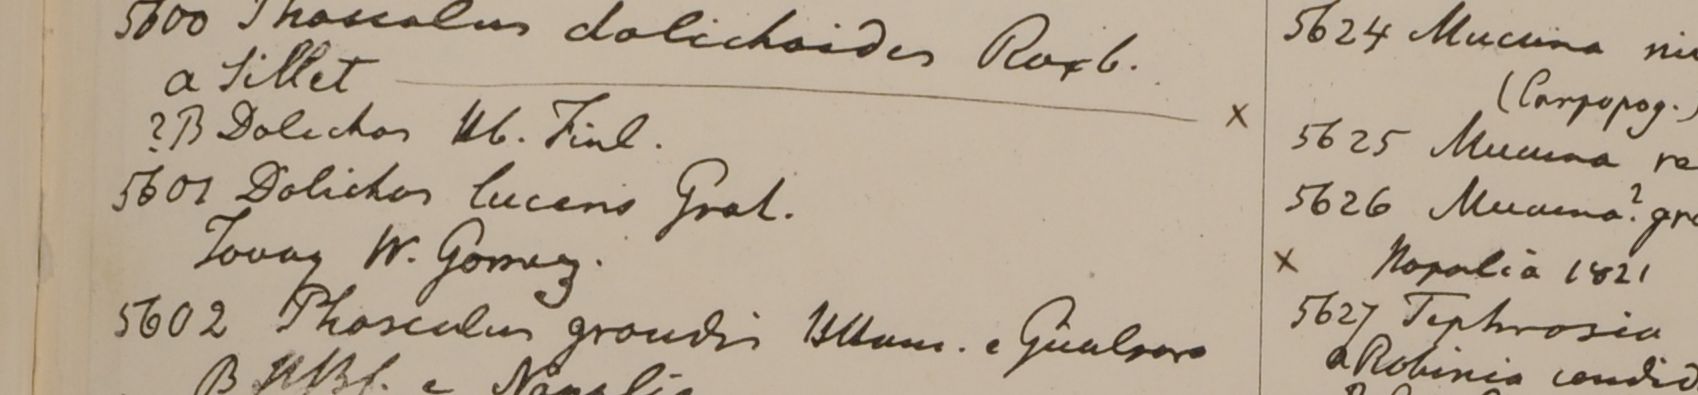 5600 Phaseolus dolichoides Roxb.
a Sillet
? B Dolichos Hb. Finl.
5601 Dolichos lucens Grah.
Tavoy W. Gomez.
5602 Phaseolus grandis Hb Ham. e Gualpara
B HBf. e Napalia
5624 Mucuna
(Carpopog.)
5625 Mucuna
5626 Mucuna?
x Napalia 1821
5627 Tephrosia
a Robinia candid